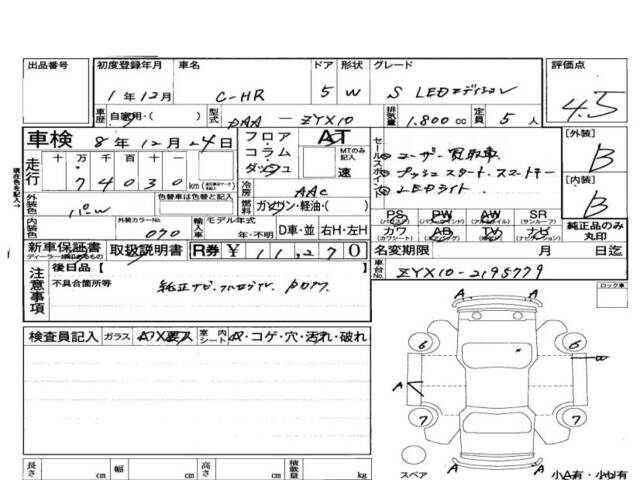 出品番号 初度登録年月 車名 ドア 形状 グレード 評価点
1年12月 C-HR 5 W S LEDエディション 4.5
車歴 自家用・( ) 型式 DAA-ZYX10 排気量 1.800cc 定員 5人
車検 8年12月24日 フロア・コラム・ダッシュ AT MTのみ記入 速
セールスポイント
ユーザー買取車
プッシュスタート.スマートキー
LEDライト.
[外装] B
[内装] B
走行 十 万 千 百 十 km
74030
現在色を記入→
冷房 AAC
外装色 パール 色替車は色替と記入
燃料 ガソリン・軽油・( )
内装色 外装カラーNo. 070 輸入車 モデル年式 年・不明 D車・並 右H・左H
PS PW AW SR
(パワステ) (パワーウインド) (アルミホイル) (サンルーフ)
カワ AB TV ナビ
(カワシート) (エアバッグ) (テレビ) (ナビゲーション)
純正品のみ丸印
新車保証書 取扱説明書 R券 ¥11,270
ディーラー捺印のあるもの
名変期限 月 日迄
車台No. ZYX10-2195779
注意事項 後日品【 】
不具合箇所等
純正ナビ.フルセグTV.
ロック車
検査員記入 ガラス A・X・要ス 室内シート ・コゲ・穴・汚れ・破れ
A A
6 6
A
7 7
A A
スペア
小A有・小U有
長さ cm 幅 cm 高さ cm 積載量 kg